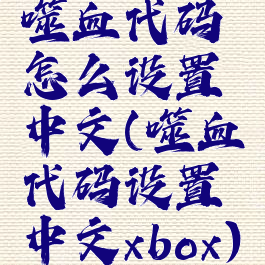 噬血代码
怎么设置
中文(噬血
代码设置
中文xbox)